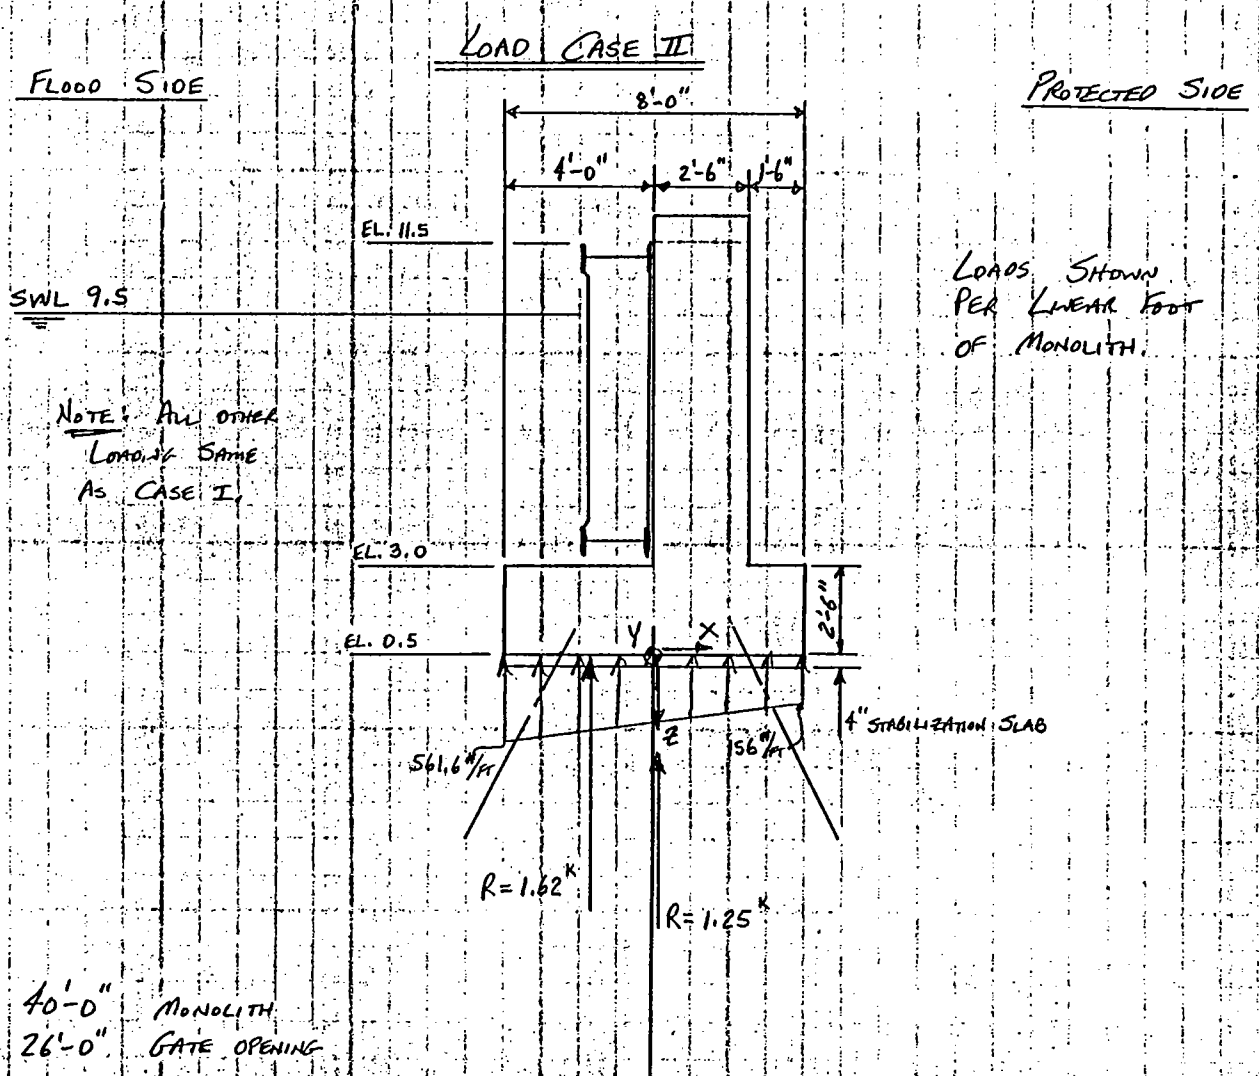 LOAD CASE II
FLOOD SIDE
PROTECTED SIDE
8'-0"
4'-0"
2'-6"
1'-6"
EL. 11.5
SWL 9.5
LOADS SHOWN
PER LINEAR FOOT
OF MONOLITH.
NOTE: ALL OTHER
LOADING SAME
AS CASE I.
EL. 3.0
2'-6"
EL. 0.5
Y
X
Z
4" STABILIZATION SLAB
561.6#/FT
156#/FT
R=1.62K
R=1.25K
40'-0" MONOLITH
26'-0" GATE OPENING